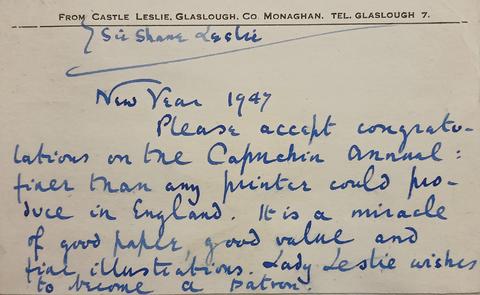 FROM CASTLE LESLIE, GLASLOUGH, CO. MONAGHAN. TEL. GLASLOUGH 7.
Sir Shane Leslie
New Year 1947
Please accept congratu-
lations on the Capuchin Annual :
finer than any printer could pro-
duce in England. It is a miracle
of good paper, good value and
fine illustrations. Lady Leslie wishes
to become a Patron.